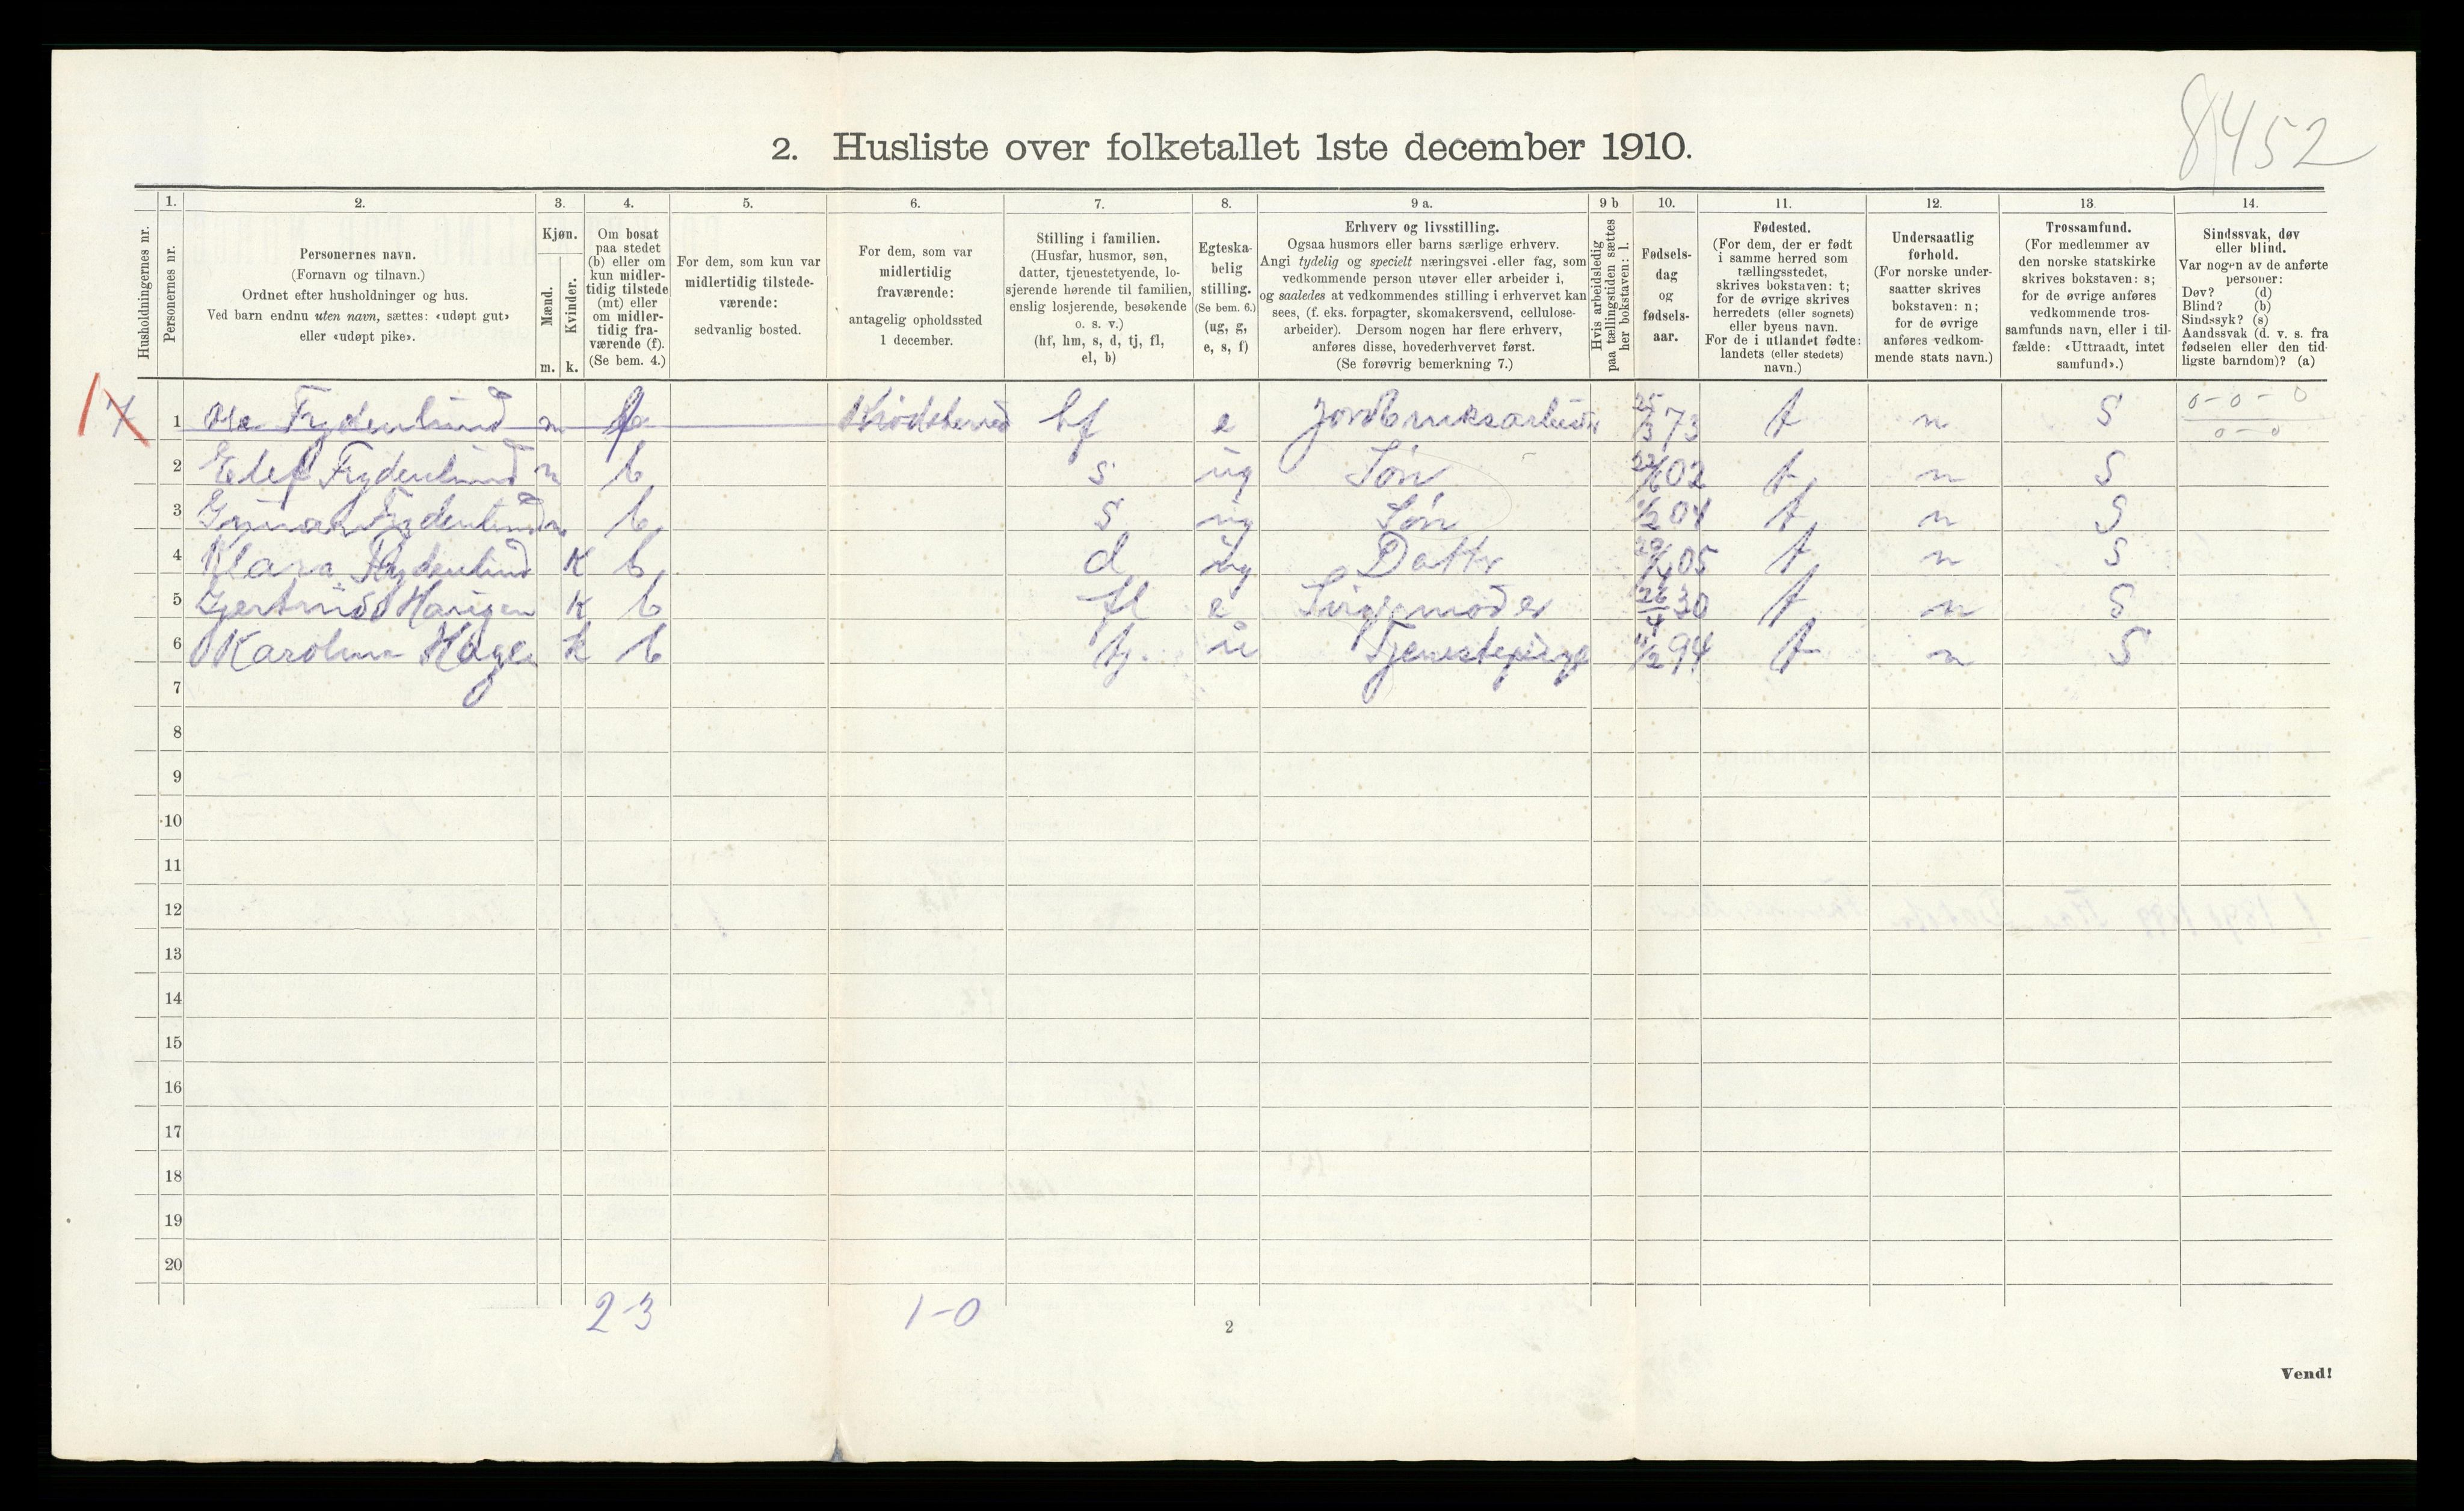 8452
2. Husliste over folketallet 1ste december 1910.
Husholdningernes nr.
1. Personernes nr.
2. Personernes navn. (Fornavn og tilnavn.) Ordnet efter husholdninger og hus. Ved barn endnu uten navn, sættes: «udøpt gut» eller «udøpt pike».
3. Kjøn. Mænd. m. Kvinder. k.
4. Om bosat paa stedet (b) eller om kun midlertidig tilstede (mt) eller om midlertidig fraværende (f). (Se bem. 4.)
5. For dem, som kun var midlertidig tilstedeværende: sedvanlig bosted.
6. For dem, som var midlertidig fraværende: antagelig opholdssted 1 december.
7. Stilling i familien. (Husfar, husmor, søn, datter, tjenestetyende, losjerende hørende til familien, enslig losjerende, besøkende o. s. v.) (hf, hm, s, d, tj, fl, el, b)
8. Egteskabelig stilling. (Se bem. 6.) (ug, g, e, s, f)
9 a. Erhverv og livsstilling. Ogsaa husmors eller barns særlige erhverv. Angi tydelig og specielt næringsvei eller fag, som vedkommende person utøver eller arbeider i, og saaledes at vedkommendes stilling i erhvervet kan sees, (f. eks. forpagter, skomakersvend, cellulosearbeider). Dersom nogen har flere erhverv, anføres disse, hovederhvervet først. (Se forøvrig bemerkning 7.)
9 b Hvis arbeidsledig paa tællingstiden sættes her bokstaven: l.
10. Fødselsdag og fødselsaar.
11. Fødested. (For dem, der er født i samme herred som tællingsstedet, skrives bokstaven: t; for de øvrige skrives herredets (eller sognets) eller byens navn. For de i utlandet fødte: landets (eller stedets) navn.)
12. Undersaatlig forhold. (For norske undersaatter skrives bokstaven: n; for de øvrige anføres vedkommende stats navn.)
13. Trossamfund. (For medlemmer av den norske statskirke skrives bokstaven: s; for de øvrige anføres vedkommende trossamfunds navn, eller i tilfælde: «Uttraadt, intet samfund».)
14. Sindssvak, døv eller blind. Var nogen av de anførte personer: Døv? (d) Blind? (b) Sindssyk? (s) Aandssvak (d. v. s. fra fødselen eller den tidligste barndom)? (a)
1 Ole Frydenlund m f Krødsherred hf e Jordbruksarbeider 25/3 73 t n S 0-0-0 0-0
2 Elef Frydenlund m b s ug Søn 22/6 02 t n S
3 Gunar Frydenlund m b s ug Søn 04 t n S
4 Klara Frydenlund k b d ug Datter 05 t n S
5 Gjertrud Haugen k b fl e Svigermoder 26/4 30 t n S
6 Karoline Hagen k b tj. Tjenestepige 94 t n S
7
8
9
10
11
12
13
14
15
16
17
18
19
20
2-3 1-0
2
Vend!